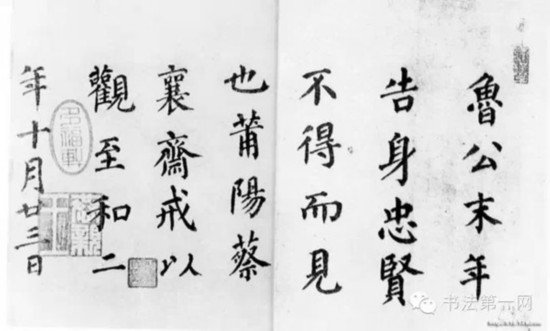 魯公末年
告身忠賢
不得而見
也莆陽蔡
襄齋戒以
觀至和二
年十月廿三日
书法第一网